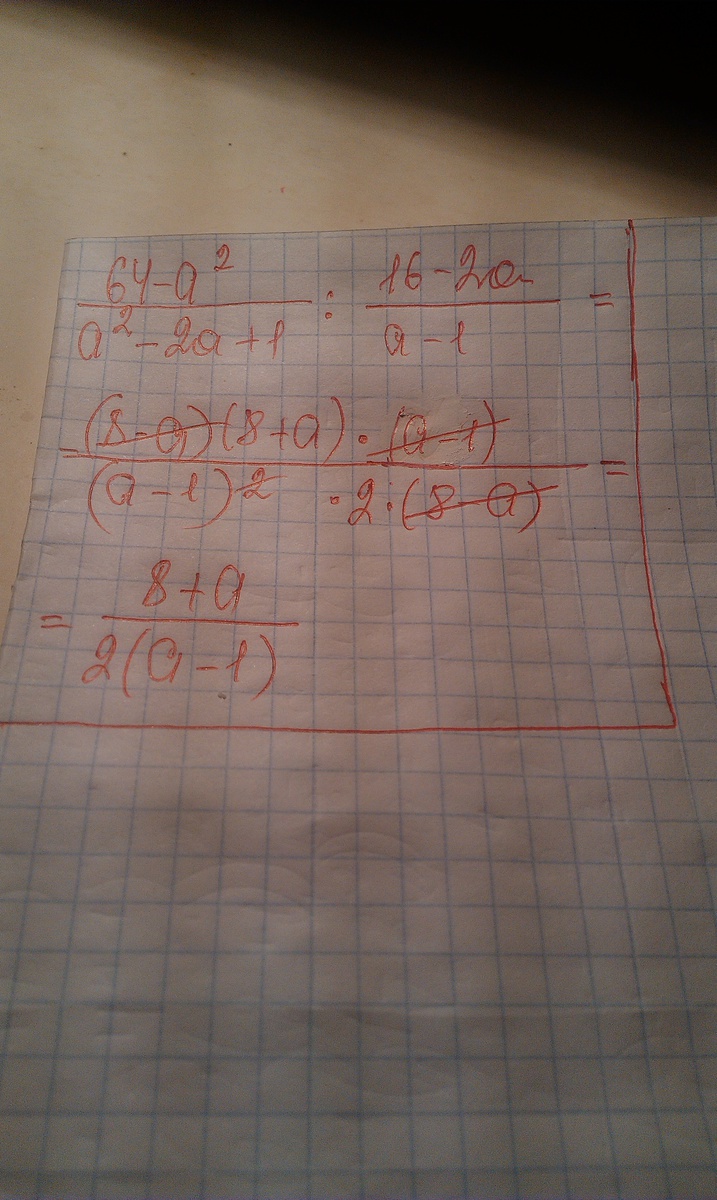 64-a² / a²-2a+1 : 16-2a / a-1 =
(8-a)(8+a)·(a-1) / (a-1)² ·2·(8-a) =
= 8+a / 2(a-1)